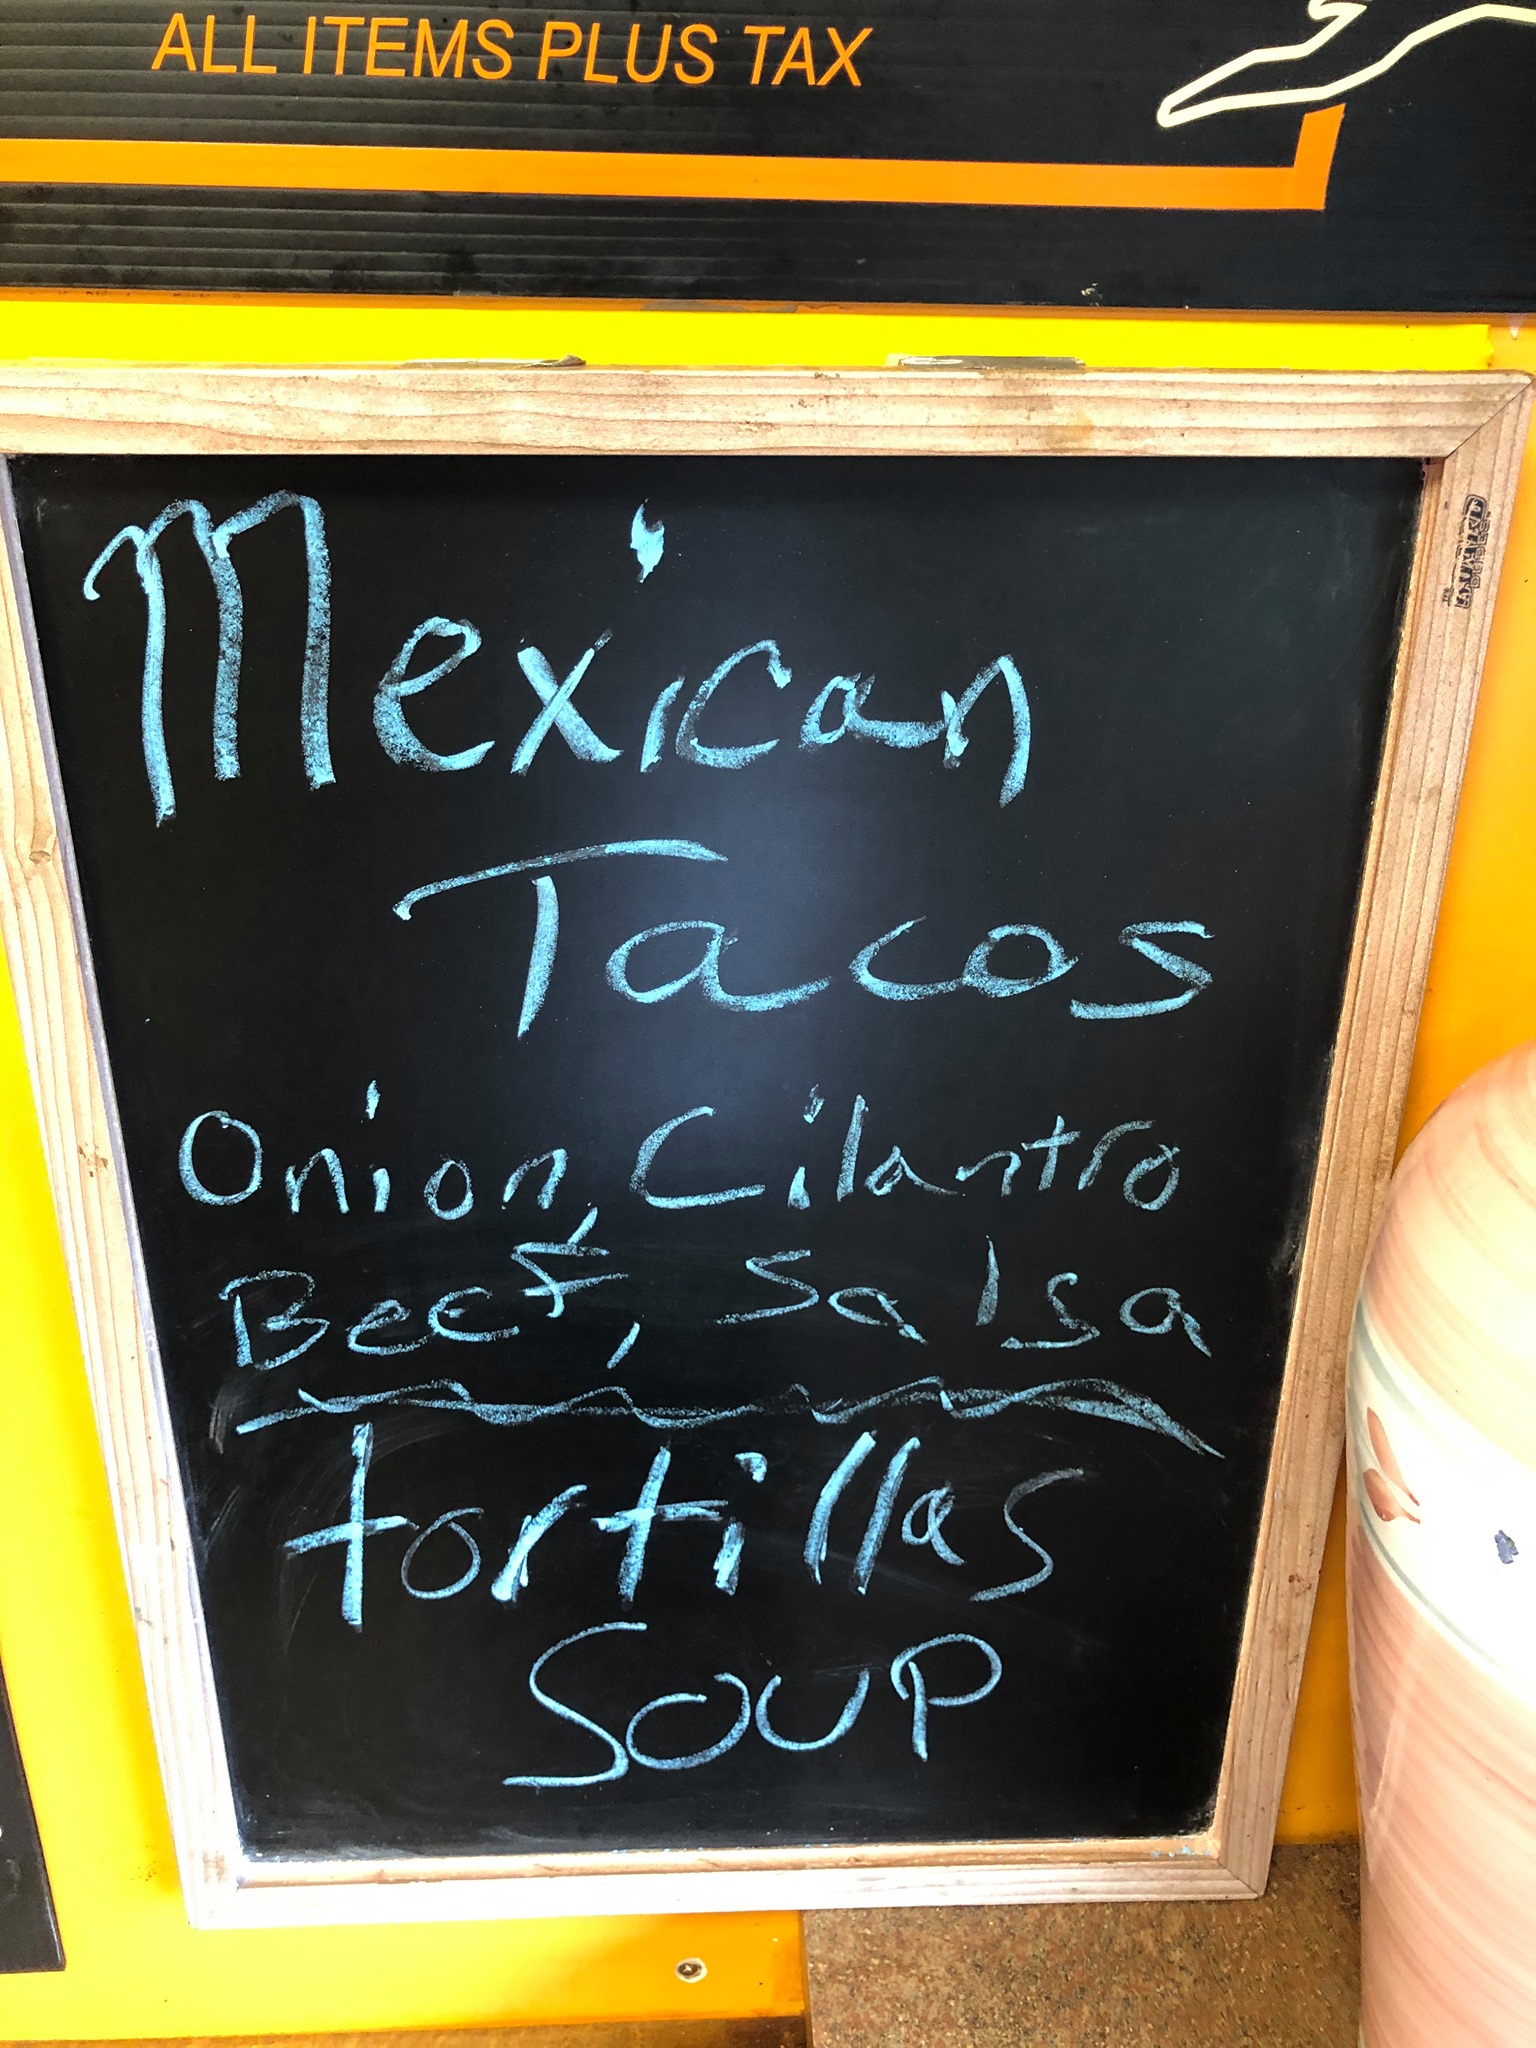 ALL ITEMS PLUS TAX
Mexican
Tacos
Onion, Cilantro
Beef, Salsa
tortillas
SOUP